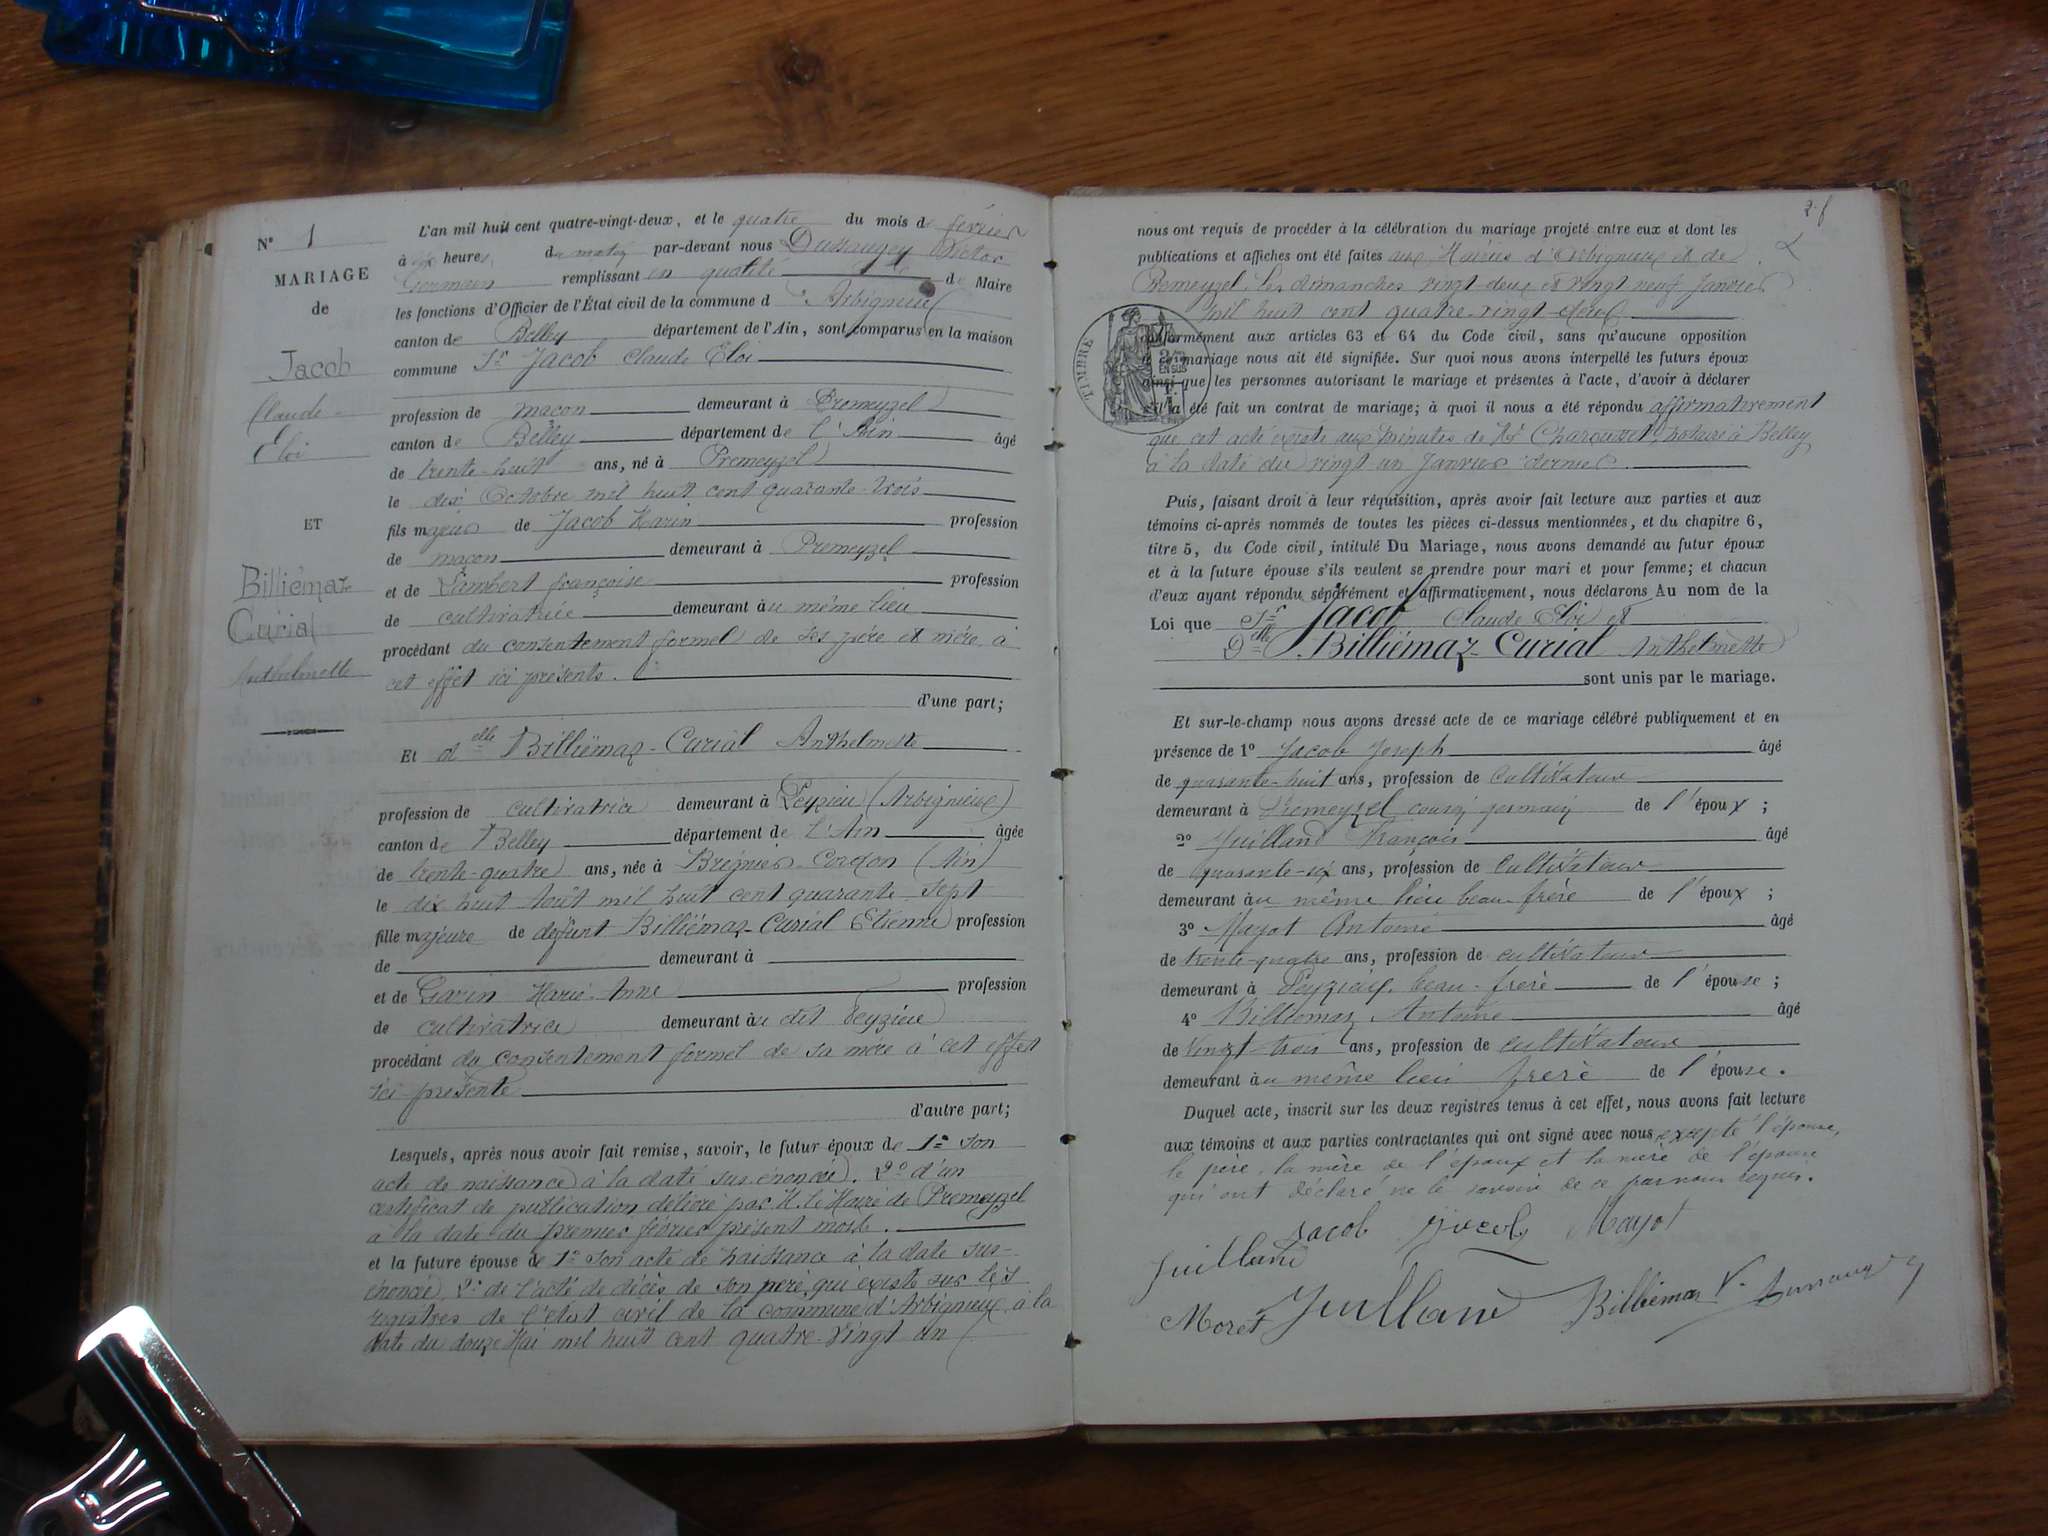 N° 1
MARIAGE
de
Jacob
Claude
Eloi
ET
Billiémaz
Curial
Anthelmette
L'an mil huit cent quatre-vingt-deux, et le quatre du mois de février
à dix heures du matin par-devant nous Dussaugey Victor
Germain remplissant en qualité de Maire
les fonctions d'Officier de l'État civil de la commune d'Arbignieu
canton de Belley département de l'Ain, sont comparus en la maison
commune Sr Jacob Claude Eloi
profession de maçon demeurant à Premeyzel
canton de Belley département de l'Ain âgé
de trente-huit ans, né à Premeyzel
le dix Octobre mil huit cent quarante-trois
fils majeur de Jacob Marin profession
de maçon demeurant à Premeyzel
et de Lambert françoise profession
de cultivatrice demeurant au même lieu
procédant du consentement formel de ses père et mère à
cet effet ici présents.
d'une part;
Et delle Billiémaz-Curial Anthelmette
profession de cultivatrice demeurant à Peyzieu (Arbignieu)
canton de Belley département de l'Ain âgée
de trente-quatre ans, née à Brégnier-Cordon (Ain)
le dix huit Août mil huit cent quarante-sept
fille majeure de défunt Billiémaz-Curial Etienne profession
de demeurant à
et de Garin Marie-Anne profession
de cultivatrice demeurant au dit Peyzieu
procédant du consentement formel de sa mère à cet effet
ici présente
d'autre part;
Lesquels, après nous avoir fait remise, savoir, le futur époux de 1° son
acte de naissance à la date sus énoncée. 2° d'un
certificat de publication délivré par M. le Maire de Premeyzel
à la date du premier février présent mois.
et la future épouse de 1° son acte de naissance à la date sus-
énoncée, 2° de l'acte de décès de son père qui existe sur les
registres de l'état civil de la commune d'Arbignieu à la
date du douze Mai mil huit cent quatre-vingt un
nous ont requis de procéder à la célébration du mariage projeté entre eux et dont les
publications et affiches ont été faites aux Mairies d'Arbignieu et de
Premeyzel, les dimanches vingt deux et vingt neuf Janvier
mil huit cent quatre-vingt-deux
TIMBRE
2/10
EN SUS
conformément aux articles 63 et 64 du Code civil, sans qu'aucune opposition
à ce mariage nous ait été signifiée. Sur quoi nous avons interpellé les futurs époux
ainsi que les personnes autorisant le mariage et présentes à l'acte, d'avoir à déclarer
s'il a été fait un contrat de mariage; à quoi il nous a été répondu affirmativement
que cet acte existe aux minutes de Me Charousset notaire à Belley
à la date du vingt un Janvier dernier
Puis, faisant droit à leur réquisition, après avoir fait lecture aux parties et aux
témoins ci-après nommés de toutes les pièces ci-dessus mentionnées, et du chapitre 6,
titre 5, du Code civil, intitulé Du Mariage, nous avons demandé au futur époux
et à la future épouse s'ils veulent se prendre pour mari et pour femme; et chacun
d'eux ayant répondu séparément et affirmativement, nous déclarons Au nom de la
Loi que Sr Jacob Claude Eloi et
Delle Billiémaz-Curial Anthelmette
sont unis par le mariage.
Et sur-le-champ nous avons dressé acte de ce mariage célébré publiquement et en
présence de 1° Jacob Joseph âgé
de quarante-huit ans, profession de cultivateur
demeurant à Premeyzel cousin germain de l'époux ;
2° Juilland François âgé
de quarante-six ans, profession de cultivateur
demeurant au même lieu beau-frère de l'époux ;
3° Mayot Antoine âgé
de trente-quatre ans, profession de cultivateur
demeurant à Peyzieu, beau-frère de l'épouse ;
4° Billiémaz Antoine âgé
de vingt-trois ans, profession de cultivateur
demeurant au même lieu frère de l'épouse.
Duquel acte, inscrit sur les deux registres tenus à cet effet, nous avons fait lecture
aux témoins et aux parties contractantes qui ont signé avec nous excepté l'épouse,
le père, la mère de l'époux et la mère de l'épouse
qui ont déclaré ne le savoir de ce par nous requis.
Jacob Jacob Mayot
Juilland
Moret Juilland Billiémaz V. Dussaugey